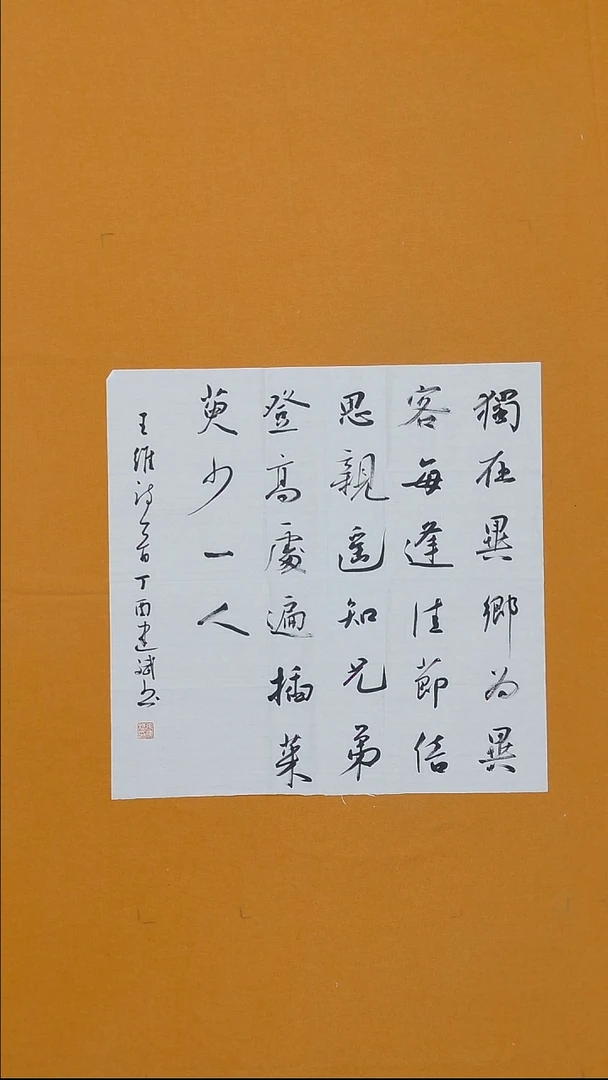 獨在異鄉為異
客每逢佳節倍
思親遥知兄弟
登高處遍插茱
萸少一人
王維詩一首丁酉建斌书